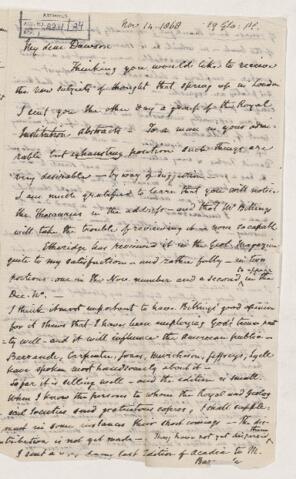 ARCHIVES
Nov 14 - 1868 29 Glo: Pl.
My dear Dawson
Thinking you would like to receive
the new subjects of thought that spring up in London
I sent you the other day a parcel of the Royal
Institution abstracts - To a man in your admi-
rable but exhausting position such things are
very desirable - by way of suggestion.
I am much gratified to learn that you will notice
the Thesaurus in the address - and that Mr Billings
will take the trouble of reviewing it - none so capable
Etheridge has reviewed it in the Geol. Magazine
quite to my satisfaction - and rather fully - in two
portions one in the Nov. number and a second to appear in the
Dec. No. -
I think it most important to have Billings' good opinion
for it shews that I have been employing God's time pret-
ty well - and it will influence the American public -
Barrande, Carpenter, Jones, Murchison, Jeffreys, Lyell
have spoken most handsomely about it -
So far it is selling well - and the edition is small.
When I know the persons to whom the Royal and Geolog-
ical Societies send gratuitous copies, I shall supple-
ment in some instances their short comings - The dis-
tribution is not yet made - They have not yet
I sent a last Edition of Acadia to M.
Bar